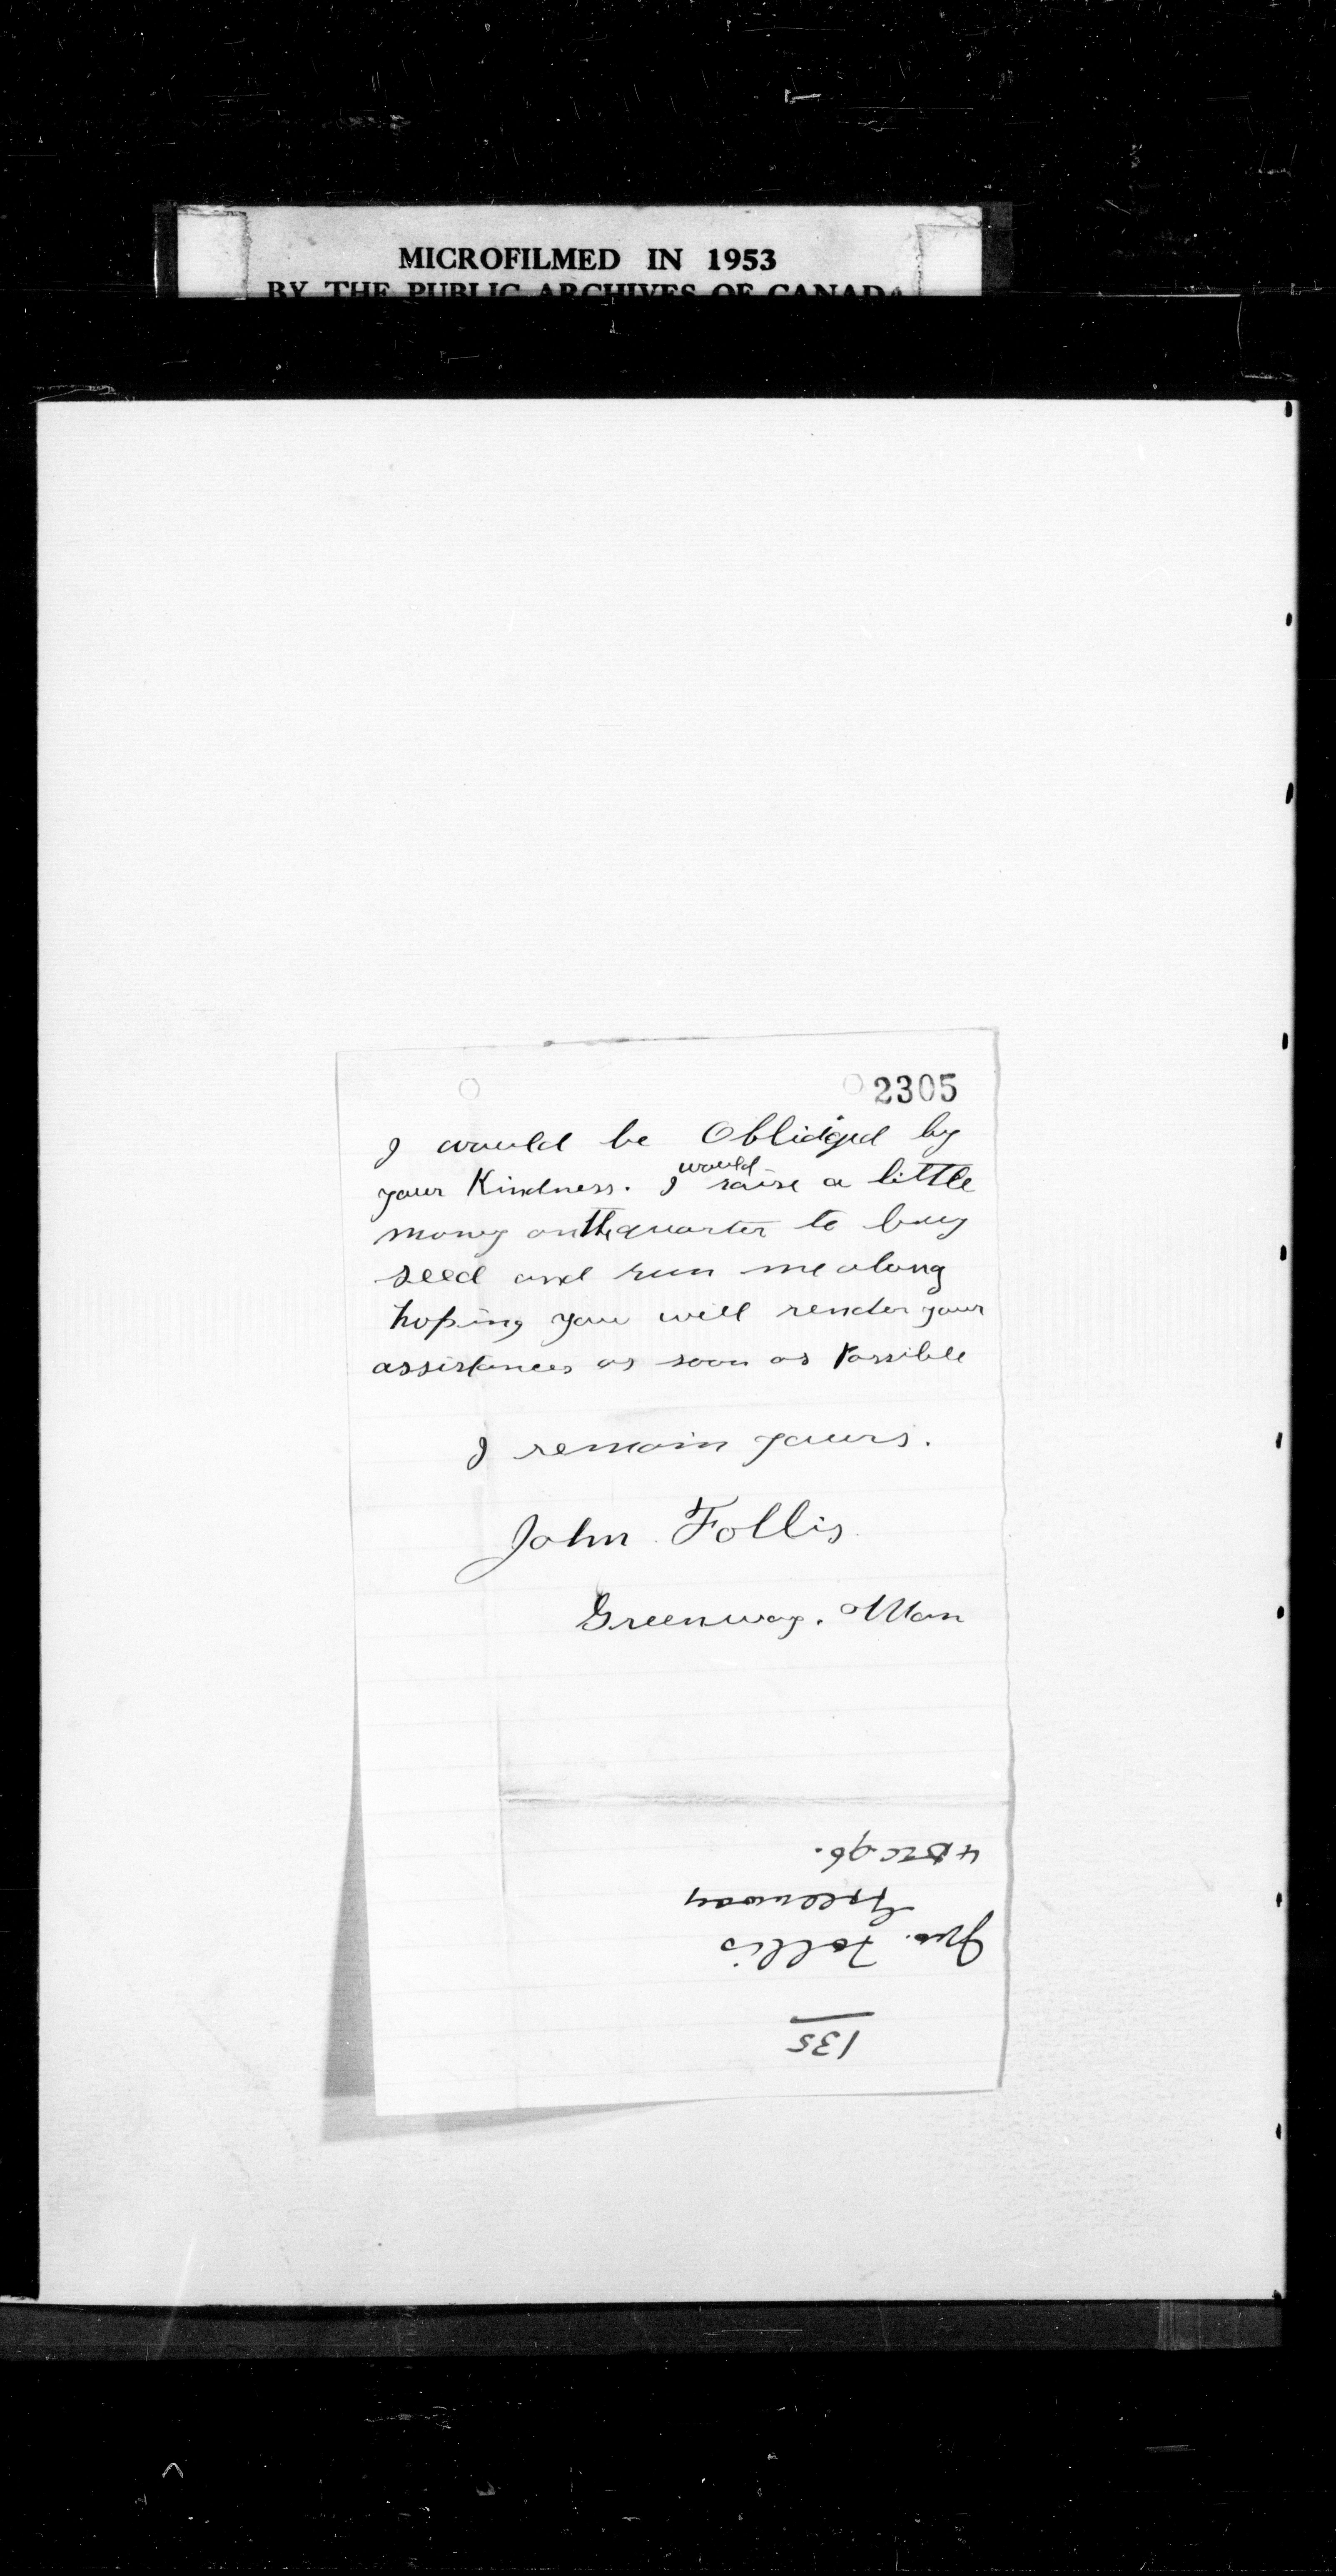 MICROFILMED IN 1953
BY THE PUBLIC ARCHIVES OF CANADA
2305
I would be Oblidged by
your Kindness. I would raise a little
mony on the quarter to buy
seed and run me along
hoping you will render your
assistances as soon as Possible
I remain yours.
John Follis.
Greenway. Man
135
Jno. Follis
Greenway
4 Dec 96.